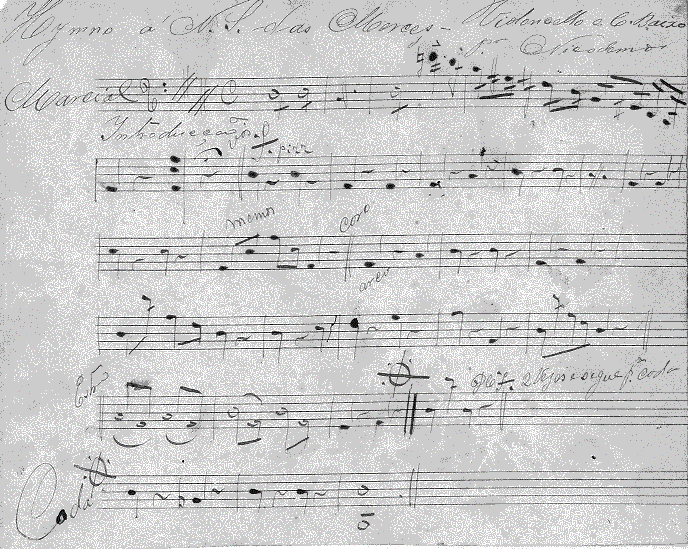 Hymno á N. S. das Mercês - Violoncello e C. Baixo
por Nicodemos
Marcial
Introducção
pizz
menos
Coro
arco
Est.
D.C. 2 vezes e segue p.a coda
Coda